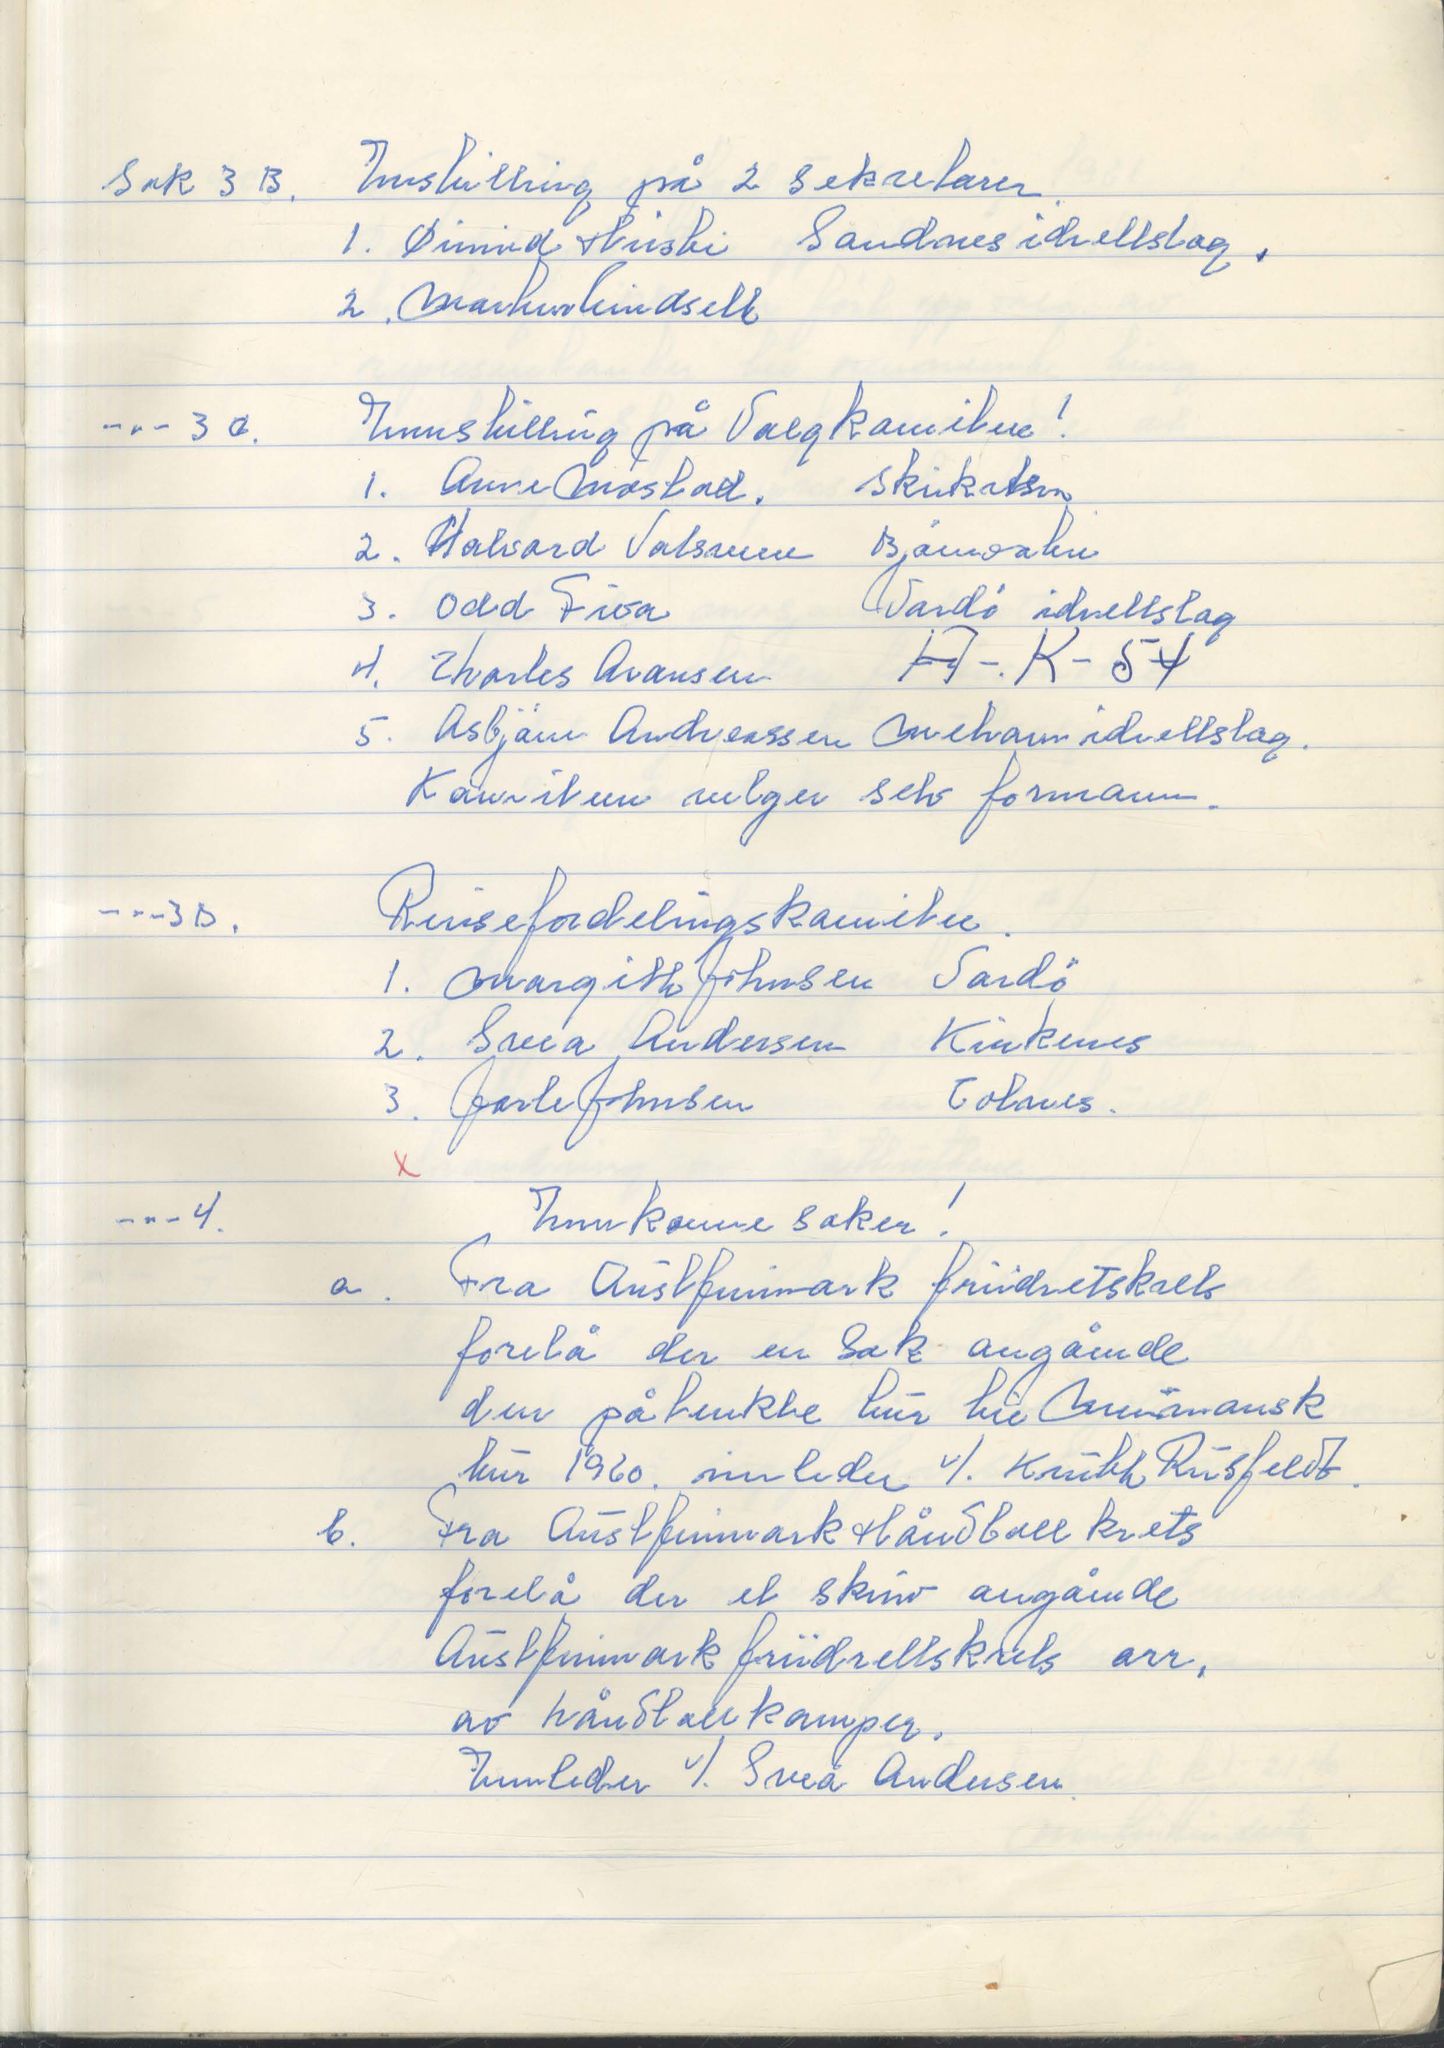 Sak 3 B. Innstilling på 2 sekretærer.
1. Øivind Huski Sandnes idrettslag.
2. Markus Lindseth
---"--- 3 C. Innstilling på Valgkomiteen!
1. Arne Mostad. Skiskretsen
2. Halvard Valsrune Bjørnvatn
3. Odd Fiva Vardö idrettslag
4. Charles Aronsen H-.K-54
5. Asbjörn Andreassen Mehamn idrettslag.
Komiteen velger selv formann.
---"---3D. Reisefordelingskomiteen.
1. Margith Johnsen Vardö
2. Svea Andersen Kirkenes
3. Jarle Johnsen Tolnes.
x
---"---4. Innkomne saker!
a. Fra Austfinnmark friidretskrets
forelå der en sak angående
den påtenkte tur til Murmansk
tur 1960. innleder v/. Knuth Rusfeldt.
b. Fra Austfinnmark Håndball krets
forelå der et skriv angående
Austfinnmark friidrettskrets arr.
av håndballkamper.
Innleder v/. Svea Andersen.